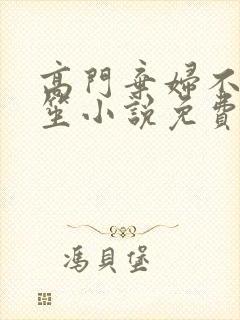 高門棄婦不
笙小說免費
馮貝堡